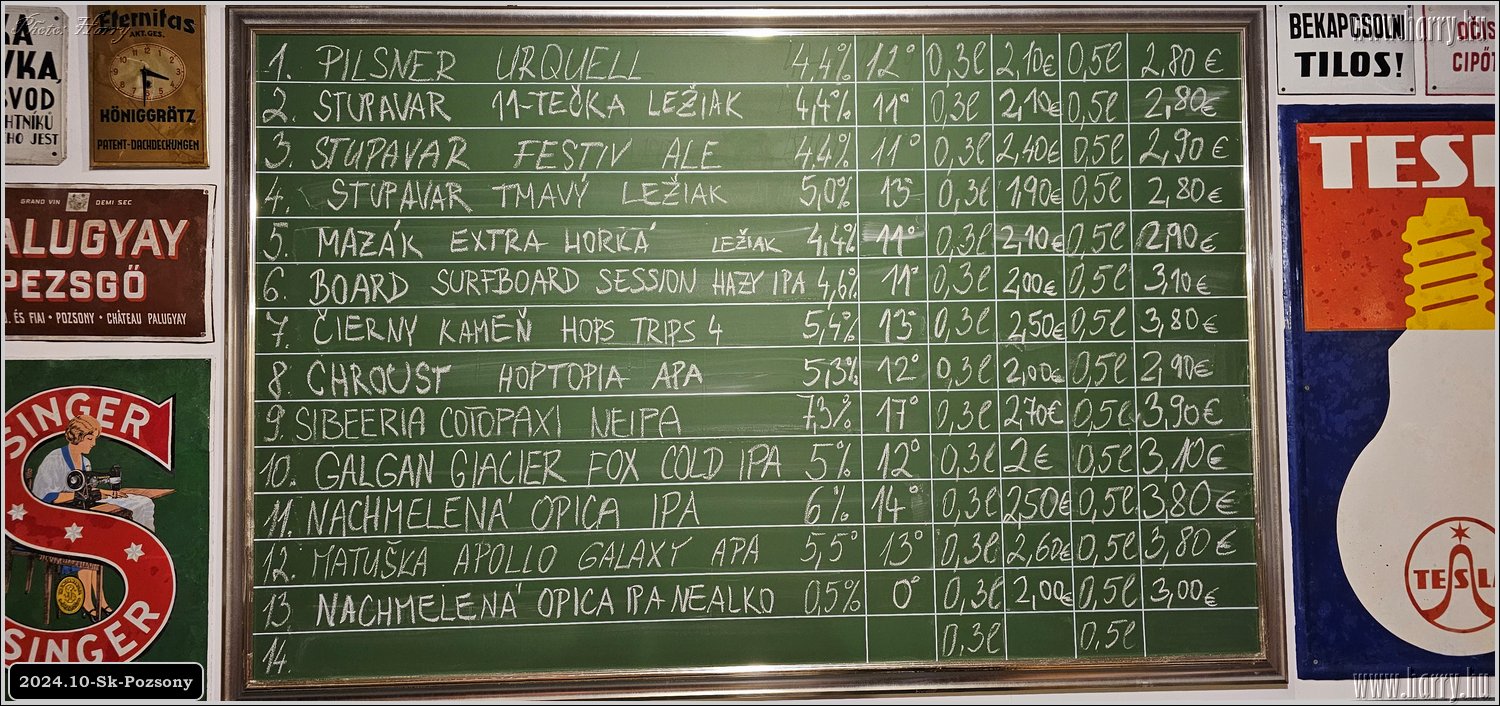 KA
VKA,
SVOD
HTNÍKŮ
HO JEST
Photo: Harry
Eternitas
AKT. GES.
KÖNIGGRÄTZ
PATENT-DACHDECKUNGEN
GRAND VIN DEMI SEC
ALUGYAY
PEZSGŐ
J. ÉS FIAI • POZSONY • CHÂTEAU PALUGYAY
SINGER
SINGER
2024.10-Sk-Pozsony
1. PILSNER URQUELL 4,4% 12° 0,3l 2,10€ 0,5l 2,80€
2. STUPAVAR 11-TEČKA LEŽIAK 4,4% 11° 0,3l 2,10€ 0,5l 2,80€
3. STUPAVAR FESTIV ALE 4,4% 11° 0,3l 2,40€ 0,5l 2,90€
4. STUPAVAR TMAVÝ LEŽIAK 5,0% 13° 0,3l 1,90€ 0,5l 2,80€
5. MAZÁK EXTRA HORKÁ LEŽIAK 4,4% 11° 0,3l 2,10€ 0,5l 2,90€
6. BOARD SURFBOARD SESSION HAZY IPA 4,6% 11° 0,3l 2,00€ 0,5l 3,10€
7. ČIERNY KAMEŇ HOPS TRIPS 4 5,4% 13° 0,3l 2,50€ 0,5l 3,80€
8. CHROUST HOPTOPIA APA 5,3% 12° 0,3l 2,00€ 0,5l 2,90€
9. SIBEERIA COTOPAXI NEIPA 7,3% 17° 0,3l 2,70€ 0,5l 3,90€
10. GALGAN GLACIER FOX COLD IPA 5% 12° 0,3l 2€ 0,5l 3,10€
11. NACHMELENÁ OPICA IPA 6% 14° 0,3l 2,50€ 0,5l 3,80€
12. MATUŠKA APOLLO GALAXY APA 5,5° 13° 0,3l 2,60€ 0,5l 3,80€
13. NACHMELENÁ OPICA IPA NEALKO 0,5% 0° 0,3l 2,00€ 0,5l 3,00€
14. 0,3l 0,5l
BEKAPCSOLNI
TILOS!
www.harry.hu
OČIS
CIPŐT
TESL
TESLA
www.harry.hu